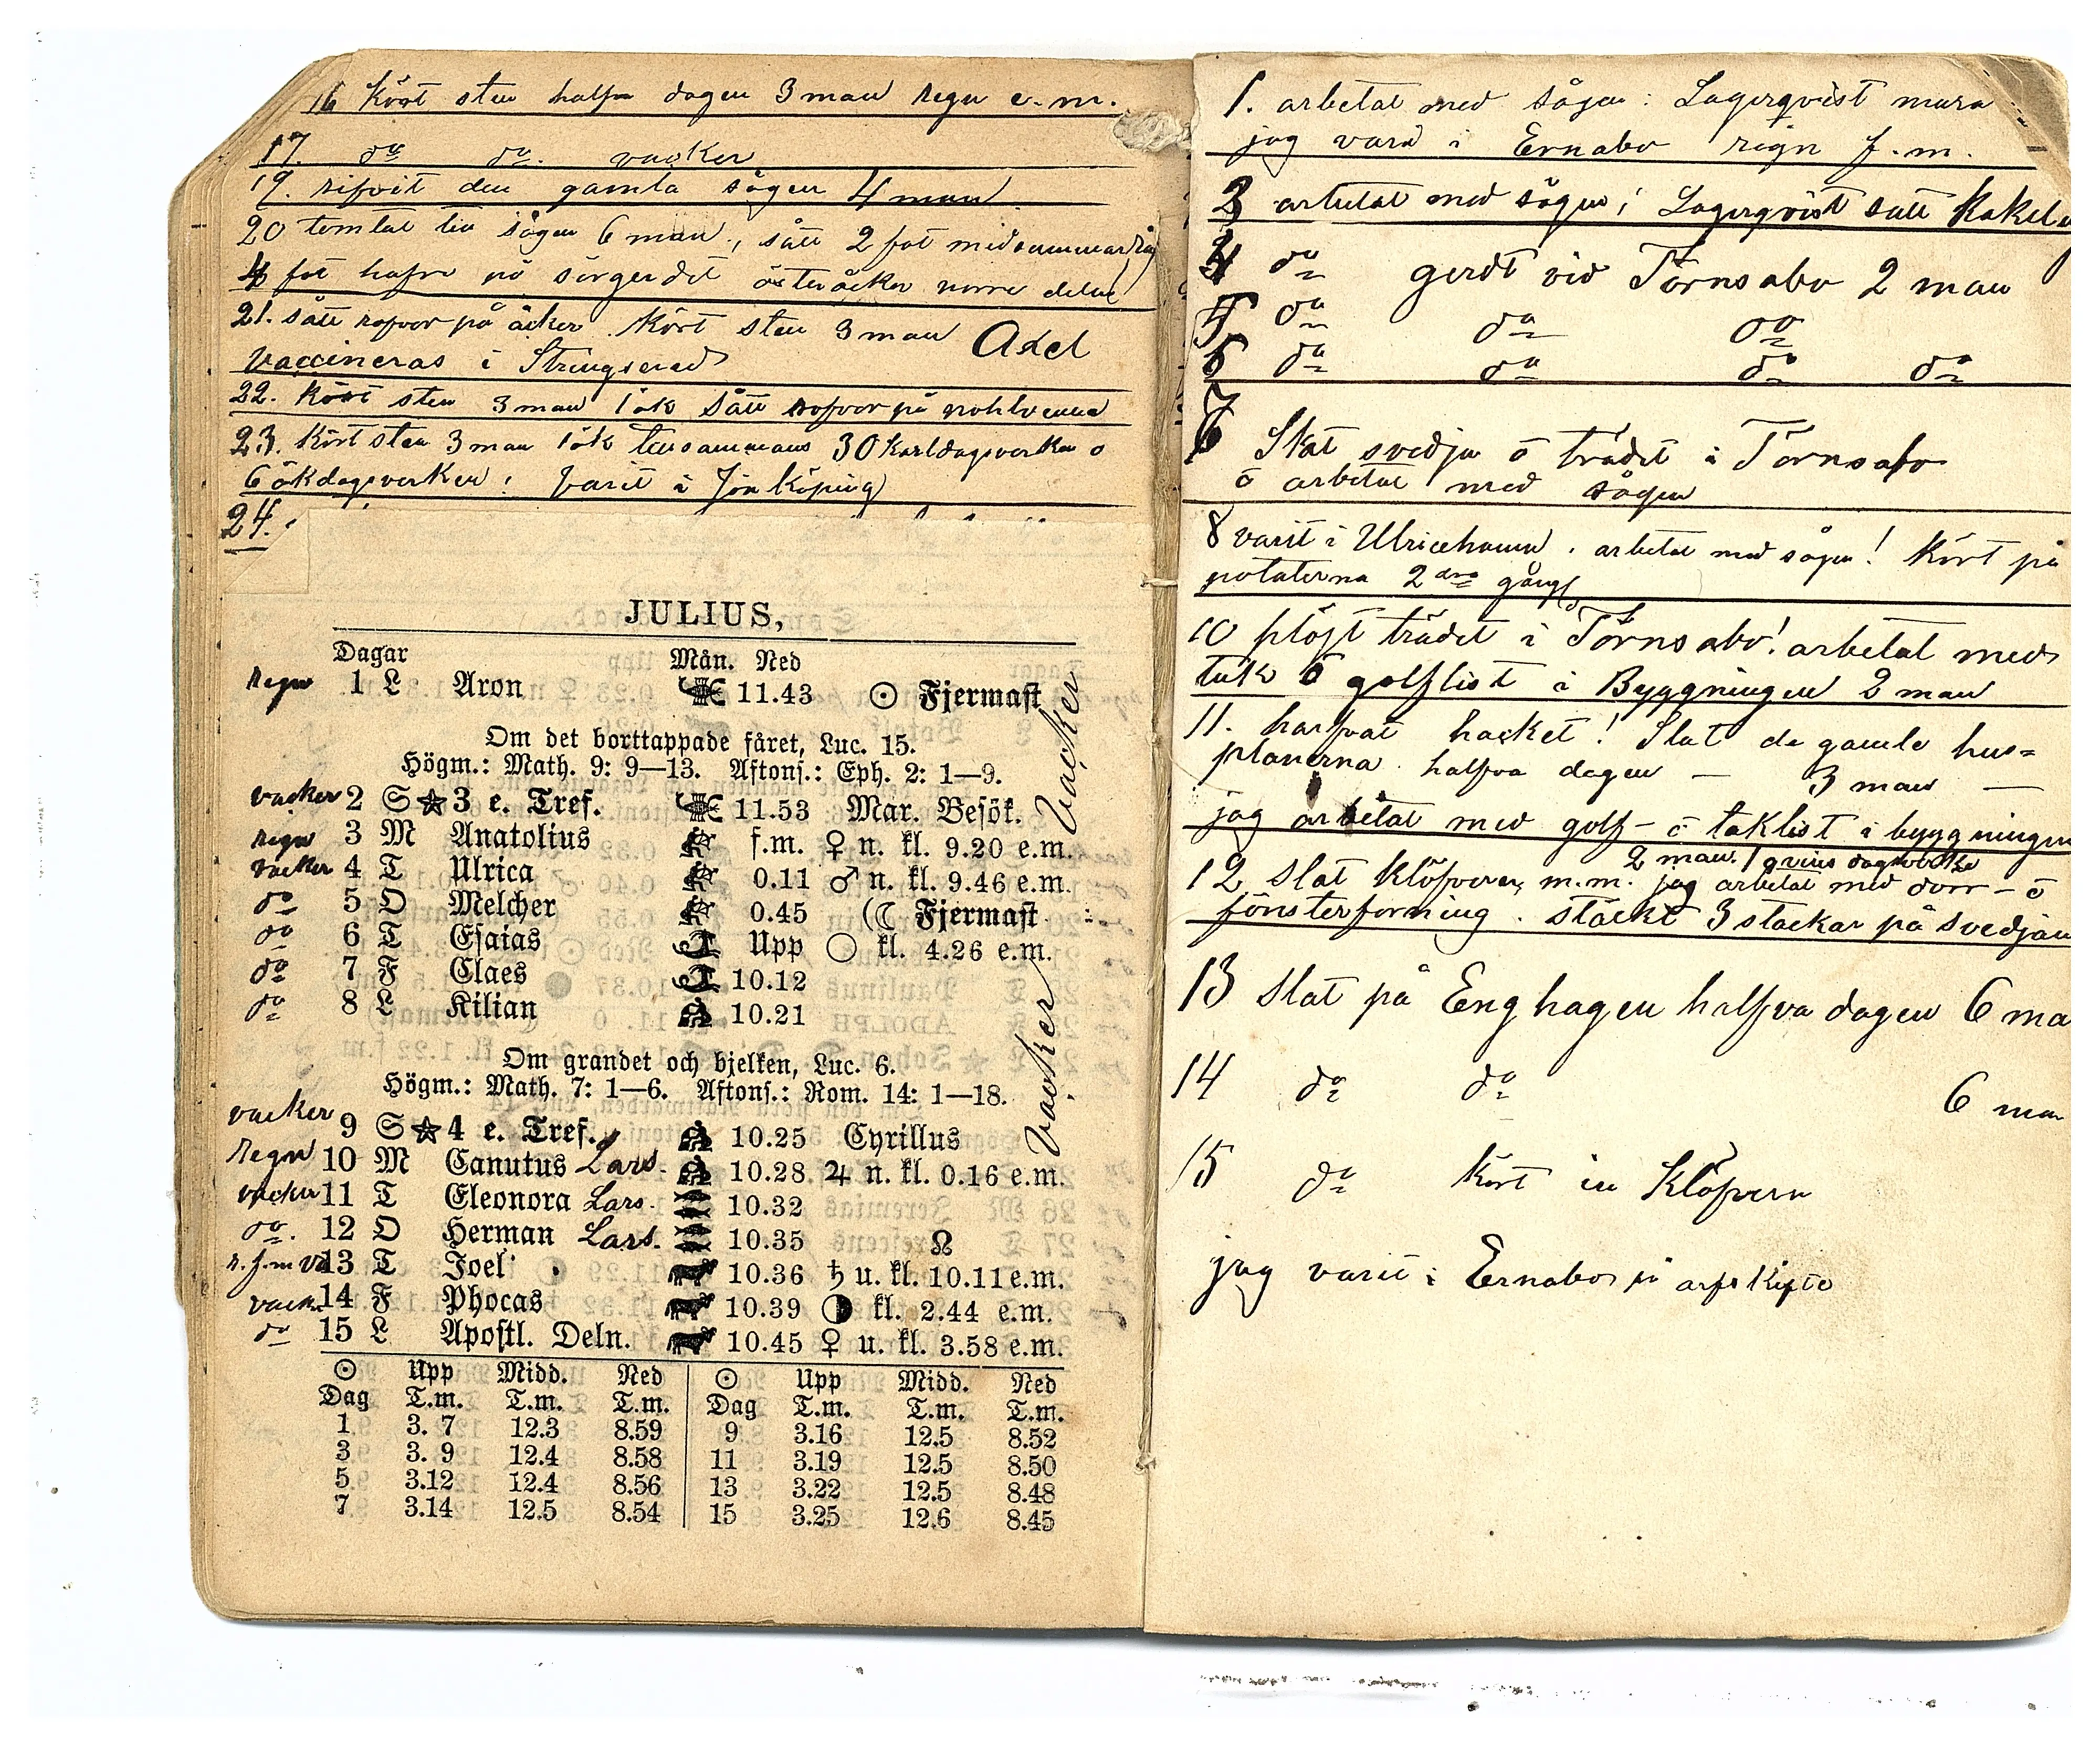 16 Kört sten halfva dagen 3 man regn e.m.
17. do do. vacker
19. rifvit den gamla sågen 4 man
20 timlat len sågen 6 man, sått 2 fat midsummar råg
4 fat hafre på sörgerdet österåcker norre delen
21. sått rofvor på åcker. Kört sten 3 man Axel
Vaccineras i Stringserad
22. Kört sten 3 man 1 ök sått rofvor på
23. Kört sten 3 man 1 ök tensammans 30 karldagsverken o
6 ökdagsverken! Varit i Jönköping
24.
JULIUS,
Dagar Mån. Ned
regn 1 L Aron 11.43 ☉ Fjermast
Om det borttappade fåret, Luc. 15.
Högm.: Math. 9: 9—13. Aftons.: Eph. 2: 1—9.
vacker 2 S★3 e. Tref. 11.53 Mar. Besök.
regn 3 M Anatolius f.m. ♀ n. kl. 9.20 e.m.
vacker 4 T Ulrica 0.11 ♂ n. kl. 9.46 e.m.
do 5 O Melcher 0.45 ☾ Fjermast
do 6 T Esaias Upp ○ kl. 4.26 e.m.
do 7 F Claes 10.12
do 8 L Kilian 10.21
vacker
Om grandet och bjelken, Luc. 6.
Högm.: Math. 7: 1—6. Aftons.: Rom. 14: 1—18.
vacker 9 S★4 e. Tref. 10.25 Cyrillus
Regn 10 M Canutus Lars. 10.28 ♃ n. kl. 0.16 e.m.
vacker 11 T Eleonora Lars. 10.32
do. 12 O Herman Lars. 10.35 ☊
r. f.m va 13 T Joel 10.36 ♄ u. kl. 10.11 e.m.
vack. 14 F Phocas 10.39 ◑ kl. 2.44 e.m.
do 15 L Apostl. Deln. 10.45 ♀ u. kl. 3.58 e.m.
vacker
☉ Upp Midd. Ned ☉ Upp Midd. Ned
Dag T.m. T.m. T.m. Dag T.m. T.m. T.m.
1 3. 7 12.3 8.59 9 3.16 12.5 8.52
3 3. 9 12.4 8.58 11 3.19 12.5 8.50
5 3.12 12.4 8.56 13 3.22 12.5 8.48
7 3.14 12.5 8.54 15 3.25 12.6 8.45
1. arbetat med sågen: Lagerqvist mura
jag varit i Ernabo regn f.m.
3 arbetat med sågen; Lagerqvist satt Kakelu
4 do gerdt vid Törnsabo 2 man
5 do do do
6 do do do do
7 Slat svedja o trädet i Törnsabo
o arbetat med sågen
8 varit i Ulricehamn. arbetat med sågen! Kört på
potaterna 2dra gång
10 plöjt trädet i Törnsabo! arbetat med
tak o golflist i Byggningen 2 man
11. harfvat hacket! Slat de gamle hus=
planerna halfva dagen — 3 man —
jag arbetat med golf- o taklist i byggningen
2 man. 1 dagsverke
12 slat klöfveren m.m. jag arbetat med dörr- o
fönsterforning. stackt 3 stackar på svedjan
13 Slat på Enghagen halfva dagen 6 ma
14 do do 6 man
15 do kört in Klöfvern
jag varit i Ernabo på arfskifte